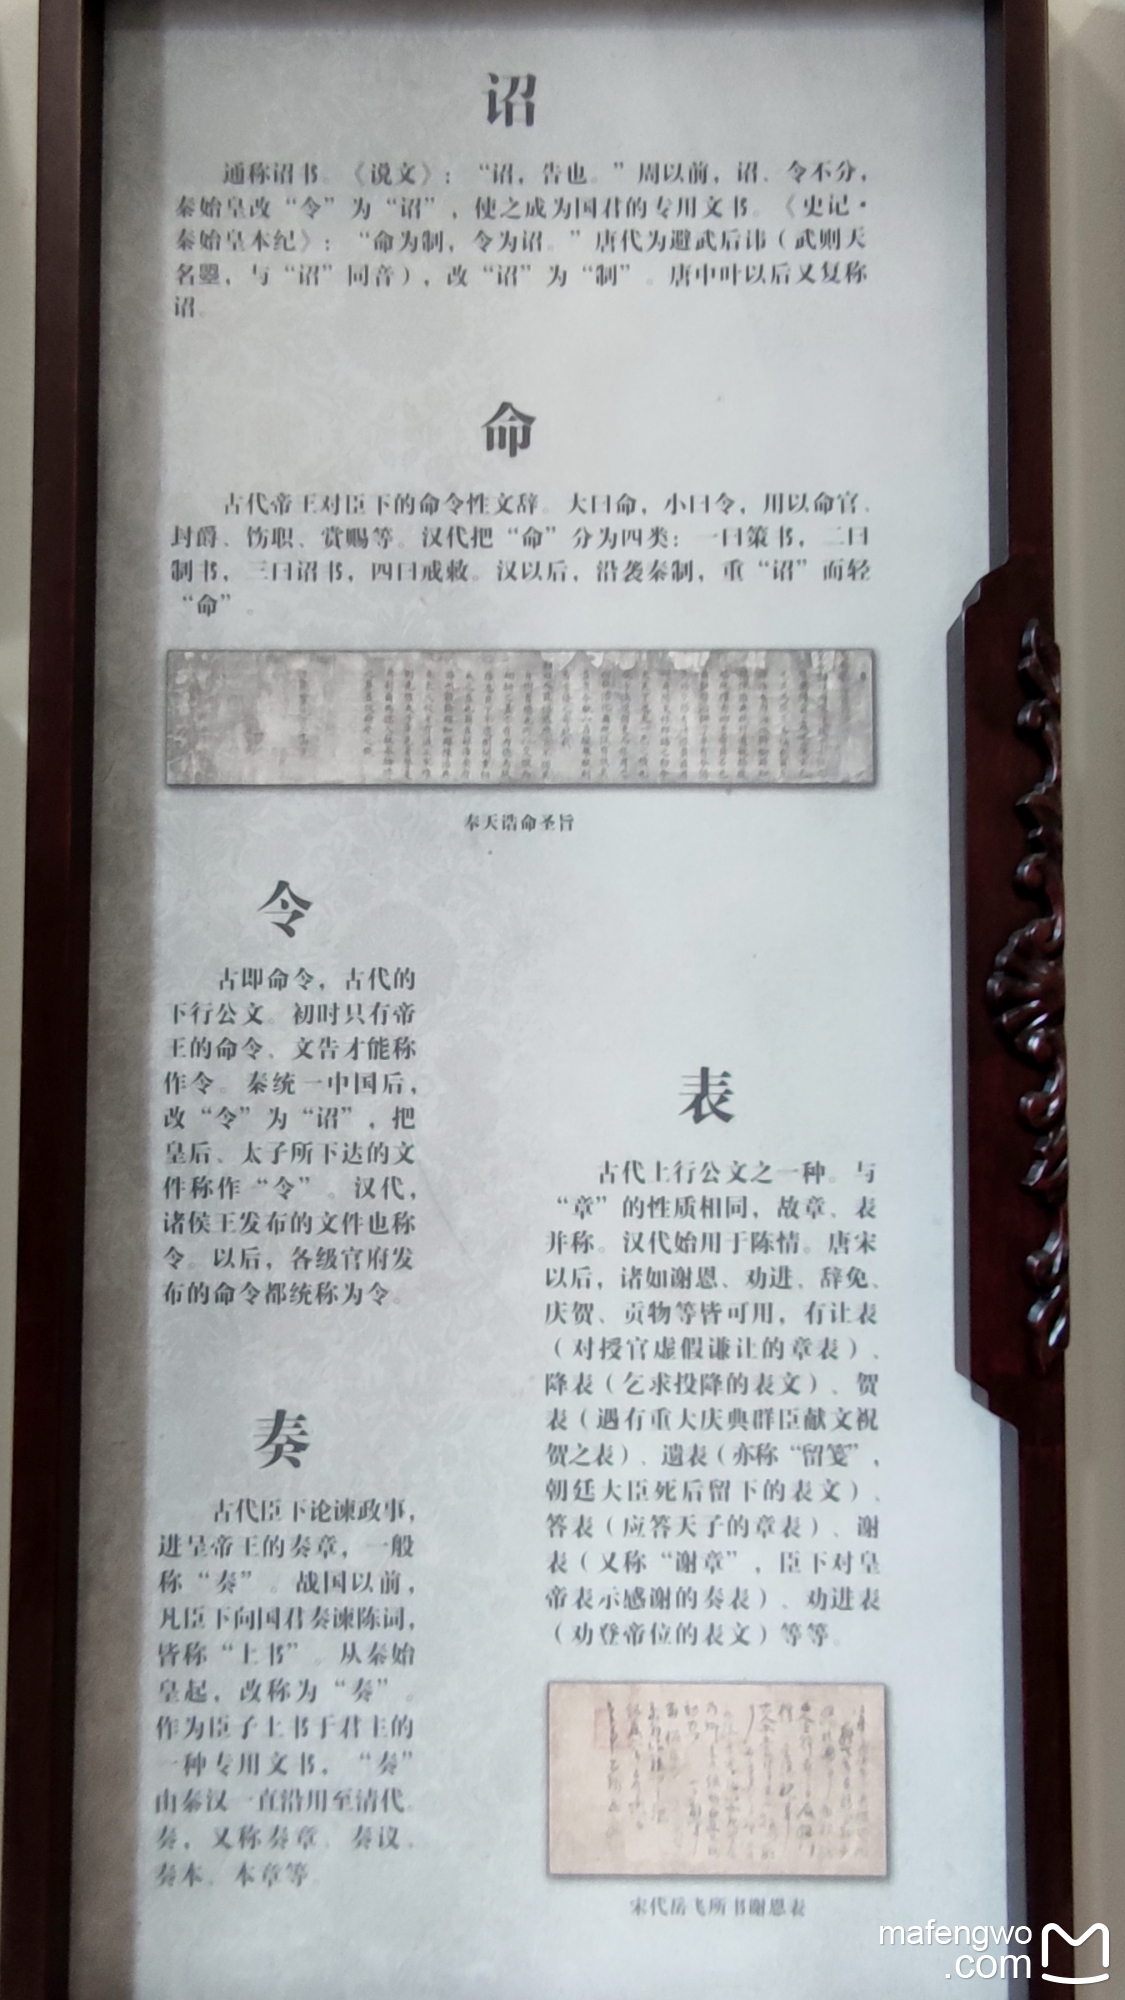 诏
通称诏书。《说文》：“诏，告也。”周以前，诏、令不分，
秦始皇改“令”为“诏”，使之成为国君的专用文书。《史记·
秦始皇本纪》：“命为制，令为诏。”唐代为避武后讳（武则天
名曌，与“诏”同音），改“诏”为“制”。唐中叶以后又复称
诏。
命
古代帝王对臣下的命令性文辞。大曰命，小曰令，用以命官、
封爵、饬职、赏赐等。汉代把“命”分为四类：一曰策书，二曰
制书，三曰诏书，四曰戒敕。汉以后，沿袭秦制，重“诏”而轻
“命”。
奉天诰命圣旨
令
古即命令，古代的
下行公文。初时只有帝
王的命令、文告才能称
作令。秦统一中国后，
改“令”为“诏”，把
皇后、太子所下达的文
件称作“令”。汉代，
诸侯王发布的文件也称
令。以后，各级官府发
布的命令都统称为令。
奏
古代臣下论谏政事，
进呈帝王的奏章，一般
称“奏”。战国以前，
凡臣下向国君奏谏陈词，
皆称“上书”。从秦始
皇起，改称为“奏”。
作为臣子上书于君主的
一种专用文书，“奏”
由秦汉一直沿用至清代。
奏，又称奏章、奏议、
奏本、本章等。
表
古代上行公文之一种。与
“章”的性质相同，故章、表
并称。汉代始用于陈情。唐宋
以后，诸如谢恩、劝进、辞免、
庆贺、贡物等皆可用，有让表
（对授官虚假谦让的章表）、
降表（乞求投降的表文）、贺
表（遇有重大庆典群臣献文祝
贺之表）、遗表（亦称“留笺”，
朝廷大臣死后留下的表文）、
答表（应答天子的章表）、谢
表（又称“谢章”，臣下对皇
帝表示感谢的奏表）、劝进表
（劝登帝位的表文）等等。
宋代岳飞所书谢恩表
mafengwo
.com